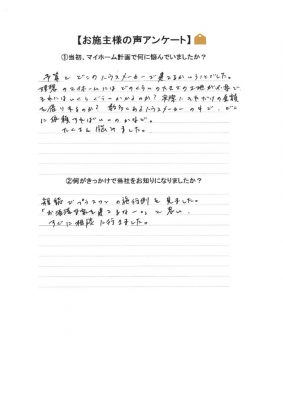 【お施主様の声アンケート】
①当初、マイホーム計画で何に悩んでいましたか？
予算とどこのハウスメーカーで建てるかということでした。
理想のマイホームにはどのくらいの大きさの土地が必要で
それにはいくらぐらいかかるのか？実際にいくらかけの金額
を借りれるのか？数あるハウスメーカーの中で、どこ
に依頼すればいいのかなど。
たくさん悩みました。
②何がきっかけで当社をお知りになりましたか？
雑誌でプラスワンの施行例を見ました。
「お洒落な家を建てるなー。」と思い、
すぐに相談に行きました。